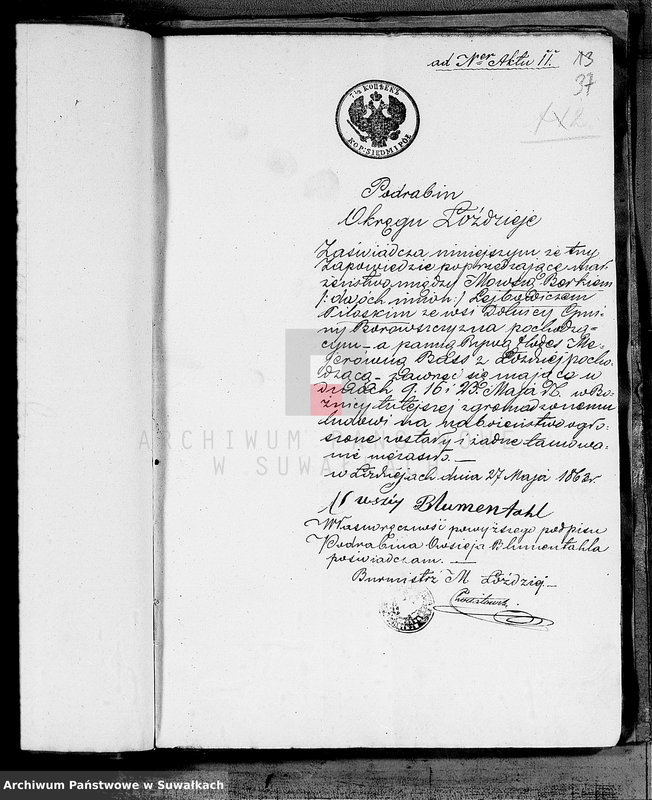 ad Ner Aktu 11.
13
37
7½ КОПѢЕКЪ
KOP: SIEDM I PÓŁ
Podrabin
Okręgu Łoździeje
Zaświadcza niniejszym że trzy
zapowiedzie poprzedzające mał
żeństwo między Mowszą Borkiem
/: dwóch imion :/ Lejbowiczem
ze wsi Gmi
ny Borowszczyzna pochodzą-
cym a panną Rywą
z Łoździej pocho
dzącą zawrzeć się mające w
dniach 9. 16 i 23. Maja w Bo
żnicy tutejszej zgromadzonemu
ludowi na nabożeństwo ogło
szone zostały i żadne tamowa-
nie nie zaszło. —
w Łoździejach dnia 27 Maja 1863 r.
Blumentahl
Własnoręczność powyższego podpisu
Podrabina Owsieja Blumentahla
poświadczam. —
Burmistrz M. Łoździej
ARCHIWUM PAŃSTWOWE
W SUWAŁKACH
Archiwum Państwowe w Suwałkach